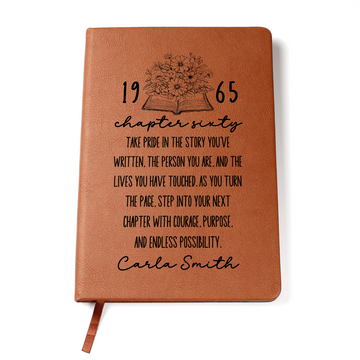 19 65
chapter sixty
TAKE PRIDE IN THE STORY YOU'VE
WRITTEN, THE PERSON YOU ARE, AND THE
LIVES YOU HAVE TOUCHED. AS YOU TURN
THE PAGE, STEP INTO YOUR NEXT
CHAPTER WITH COURAGE, PURPOSE,
AND ENDLESS POSSIBILITY.
Carla Smith